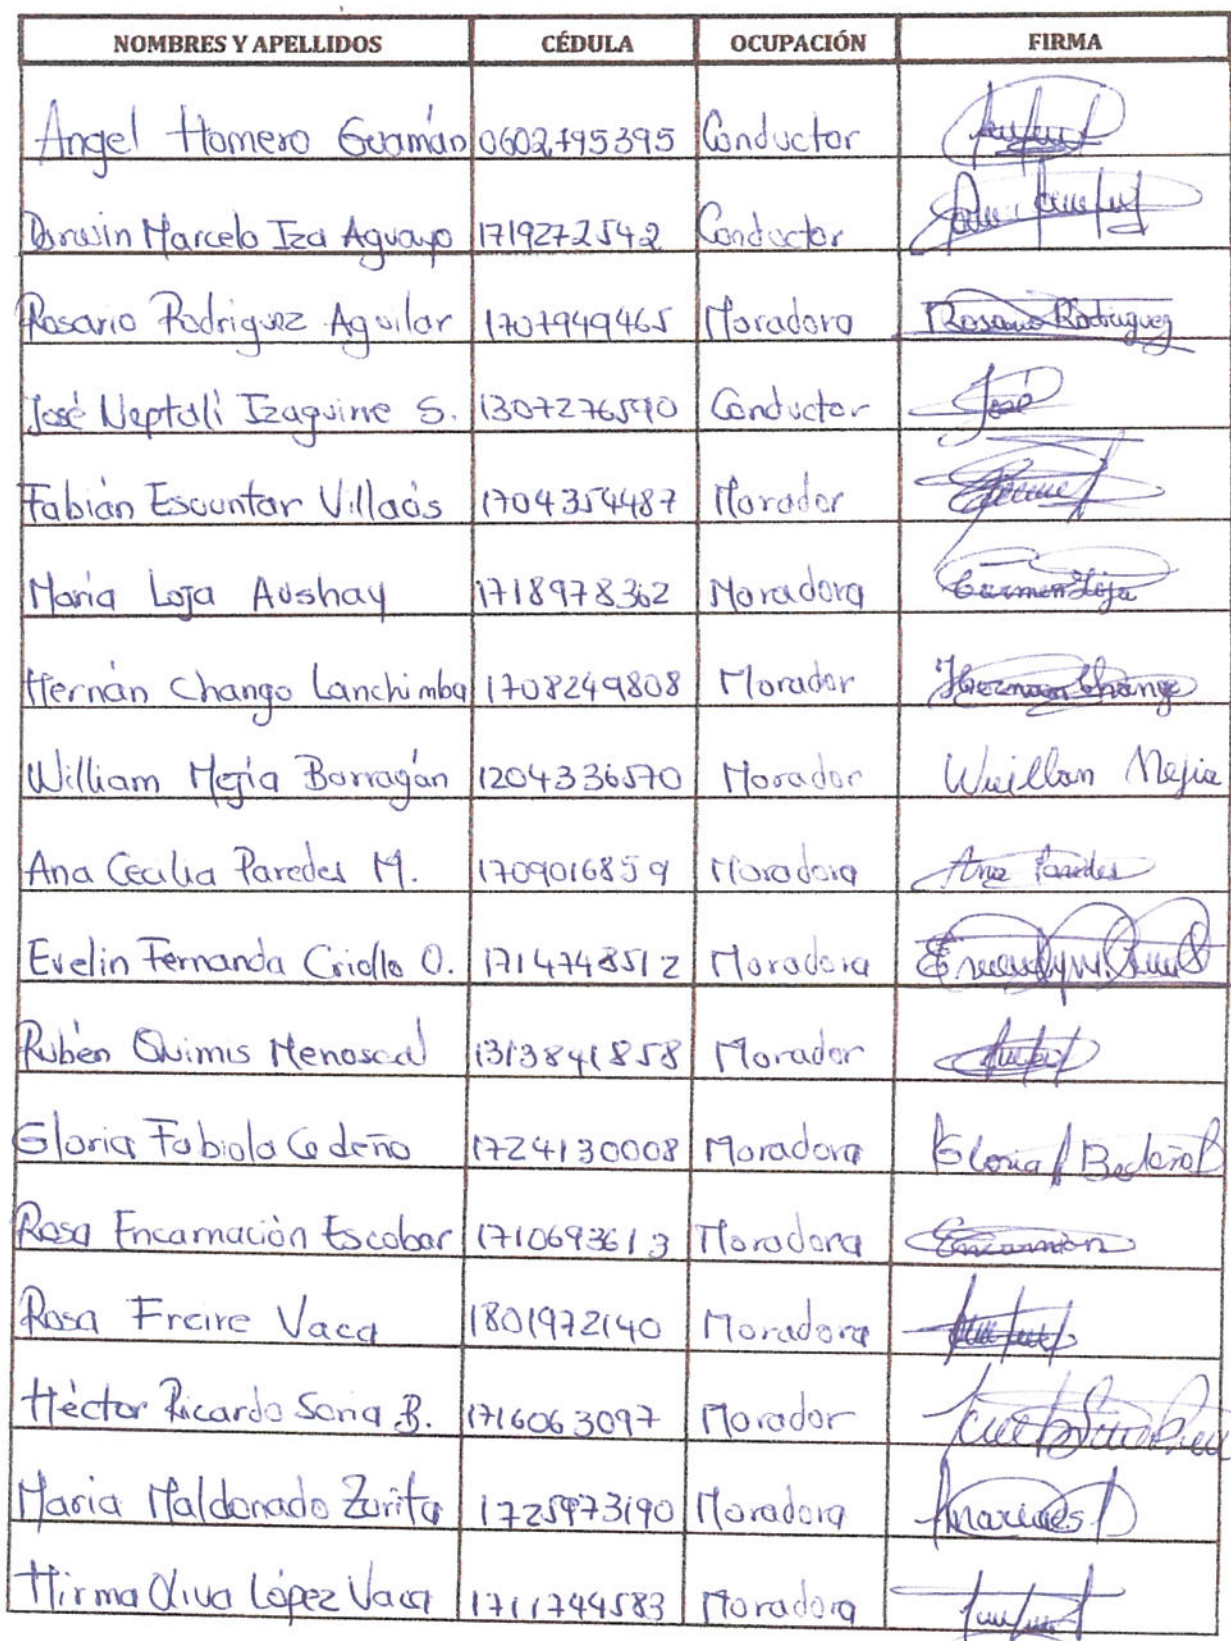 NOMBRES Y APELLIDOS CÉDULA OCUPACIÓN FIRMA
Angel Homero Guamán 0602795395 Conductor
Darwin Marcelo Iza Aguayo 1719272542 Conductor
Rosario Rodriguez Aguilar 1707949465 Moradora Rosario Rodriguez
José Neptalí Izaguirre S. 1307276590 Conductor José
Fabián Escuntar Villacís 1704354487 Morador
María Loja Aushay 1718978362 Moradora Carmen Loja
Hernán Chango Lanchimba 1708249808 Morador Hernan Chango
William Mejía Barragán 1204336570 Morador Wuillan Mejia
Ana Cecilia Paredes M. 1709016859 Moradora Ana Paredes
Evelin Fernanda Criollo O. 1714748512 Moradora
Rubén Quimis Menoscal 1313841858 Morador
Gloria Fabiola Cedeño 1724130008 Moradora Gloria
Rosa Encarnación Escobar 1710693613 Moradora
Rosa Freire Vaca 1801972140 Moradora
Héctor Ricardo Soria B. 1716063097 Morador
Maria Maldonado Zurita 1725973190 Moradora
Hirma Oliva López Vaca 1711744583 Moradora